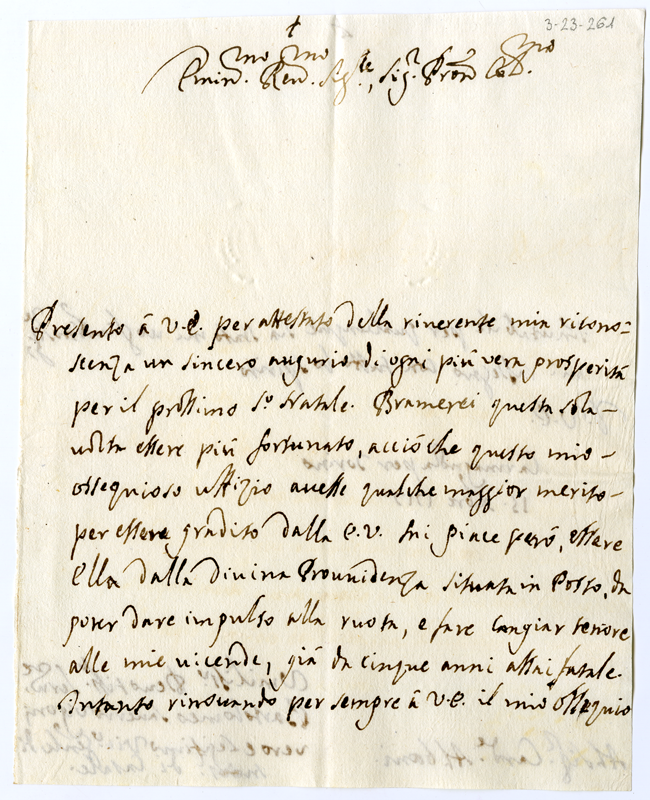 3-23-261
Emin.mo Rev.mo Sig.re, Sig.r Pron Col.mo
Presento à V.E. per attestato della riverente mia ricono=
scenza un sincero augurio di ogni più vera prosperità
per il prossimo S.o Natale. Bramerei questa sola-
volta essere più fortunato, acciò che questo mio-
ossequioso uffizio avesse qualche maggior merito-
per essere gradito dalla E.V. Mi piace però, essere
Ella dalla Divina Providenza situata in Posto, da
poter dare impulso alla ruota, e fare cangiar tenore
alle mie vicende, già da cinque anni assai fatale.
Intanto rinovando per sempre à V.E. il mio ossequio